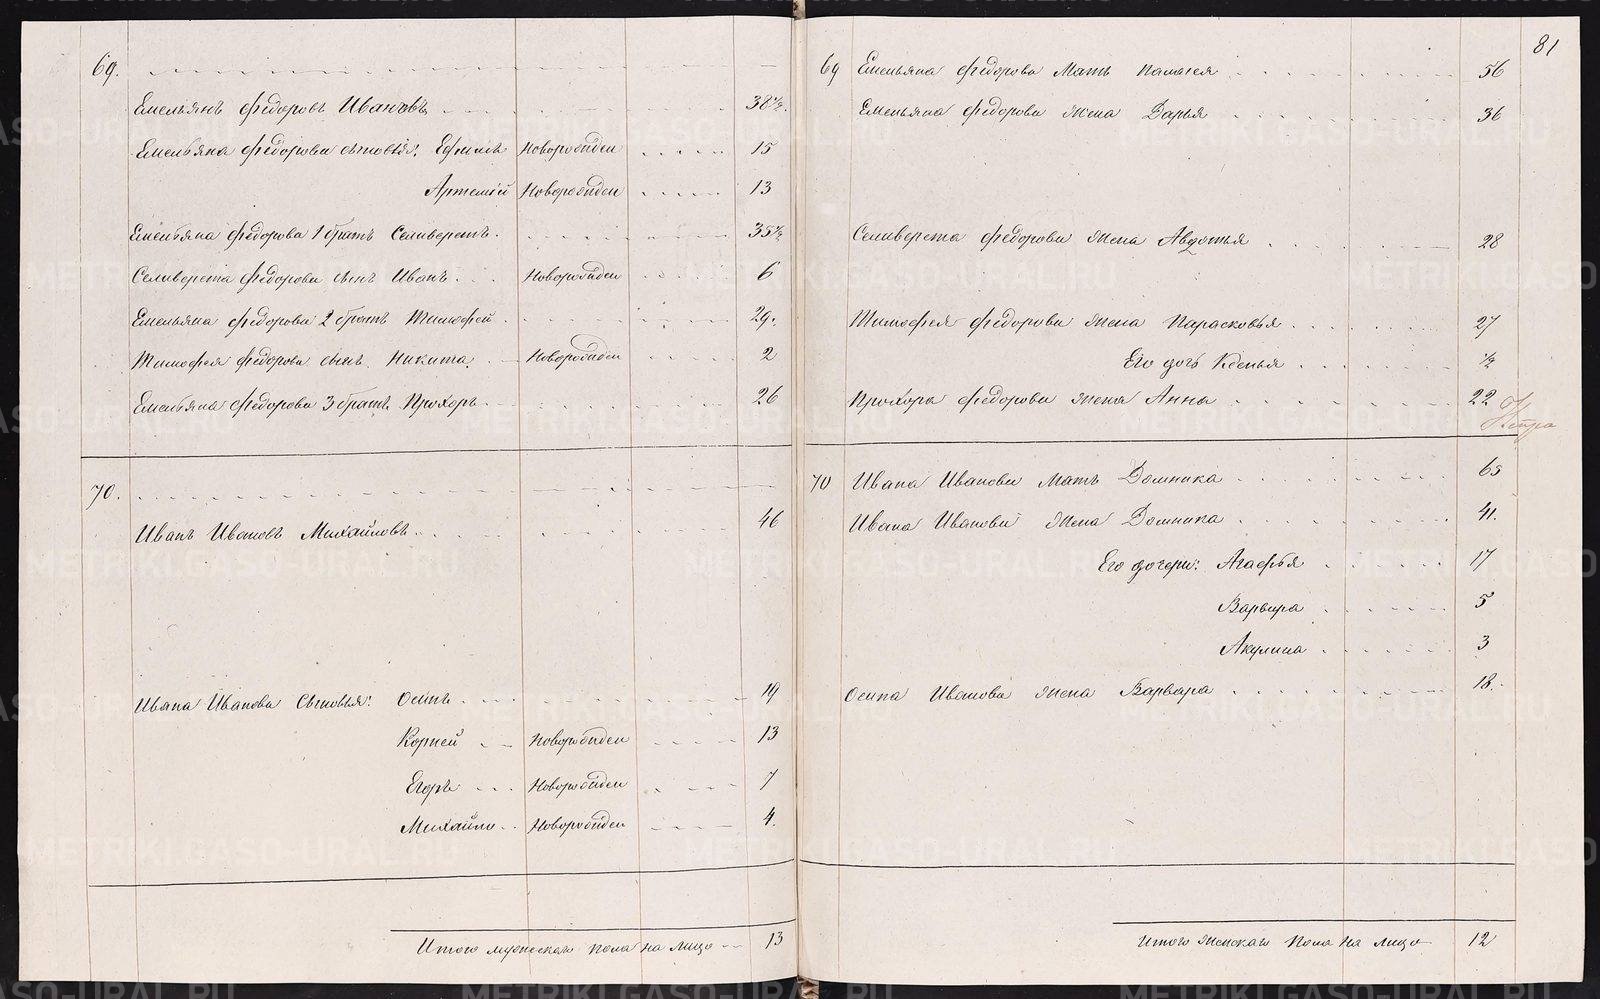 81
69.
Емельянъ Федоровъ Ивановъ 38½.
Емельяна Федорова сыновья: Ефимъ Новорожден 15
Артемий Новорожден 13
Емельяна Федорова 1 братъ Селиверстъ. 35½
Селиверста Федорова сынъ Иванъ Новорожден 6
Емельяна Федорова 2 братъ Тимофей 29.
Тимофея Федорова сынъ Никита. Новорожден 2
Емельяна Федорова 3 братъ Прохоръ 26
70.
Иванъ Ивановъ Михайловъ 46
Ивана Иванова Сыновья: Осипъ 19
Корней Новорожден 13
Егоръ Новорожден 7
Михайло Новорожден 4.
Итого мужескаго пола на лицо 13
69 Емельяна Федорова Мать Палагея 56
Емельяна Федорова жена Дарья 36
Селиверста Федорова жена Авдотья 28
Тимофея Федорова жена Парасковья 27
Его дочь Ксенья ½
Прохора Федорова жена Анна 22
70 Ивана Иванова Мать Домника 65
Ивана Иванова жена Домника 41.
Его дочери: Агафья 17
Варвара 5
Акулина 3
Осипа Иванова жена Варвара 18.
Итого женскаго Пола на лицо 12
METRIKI.GASO-URAL.RU